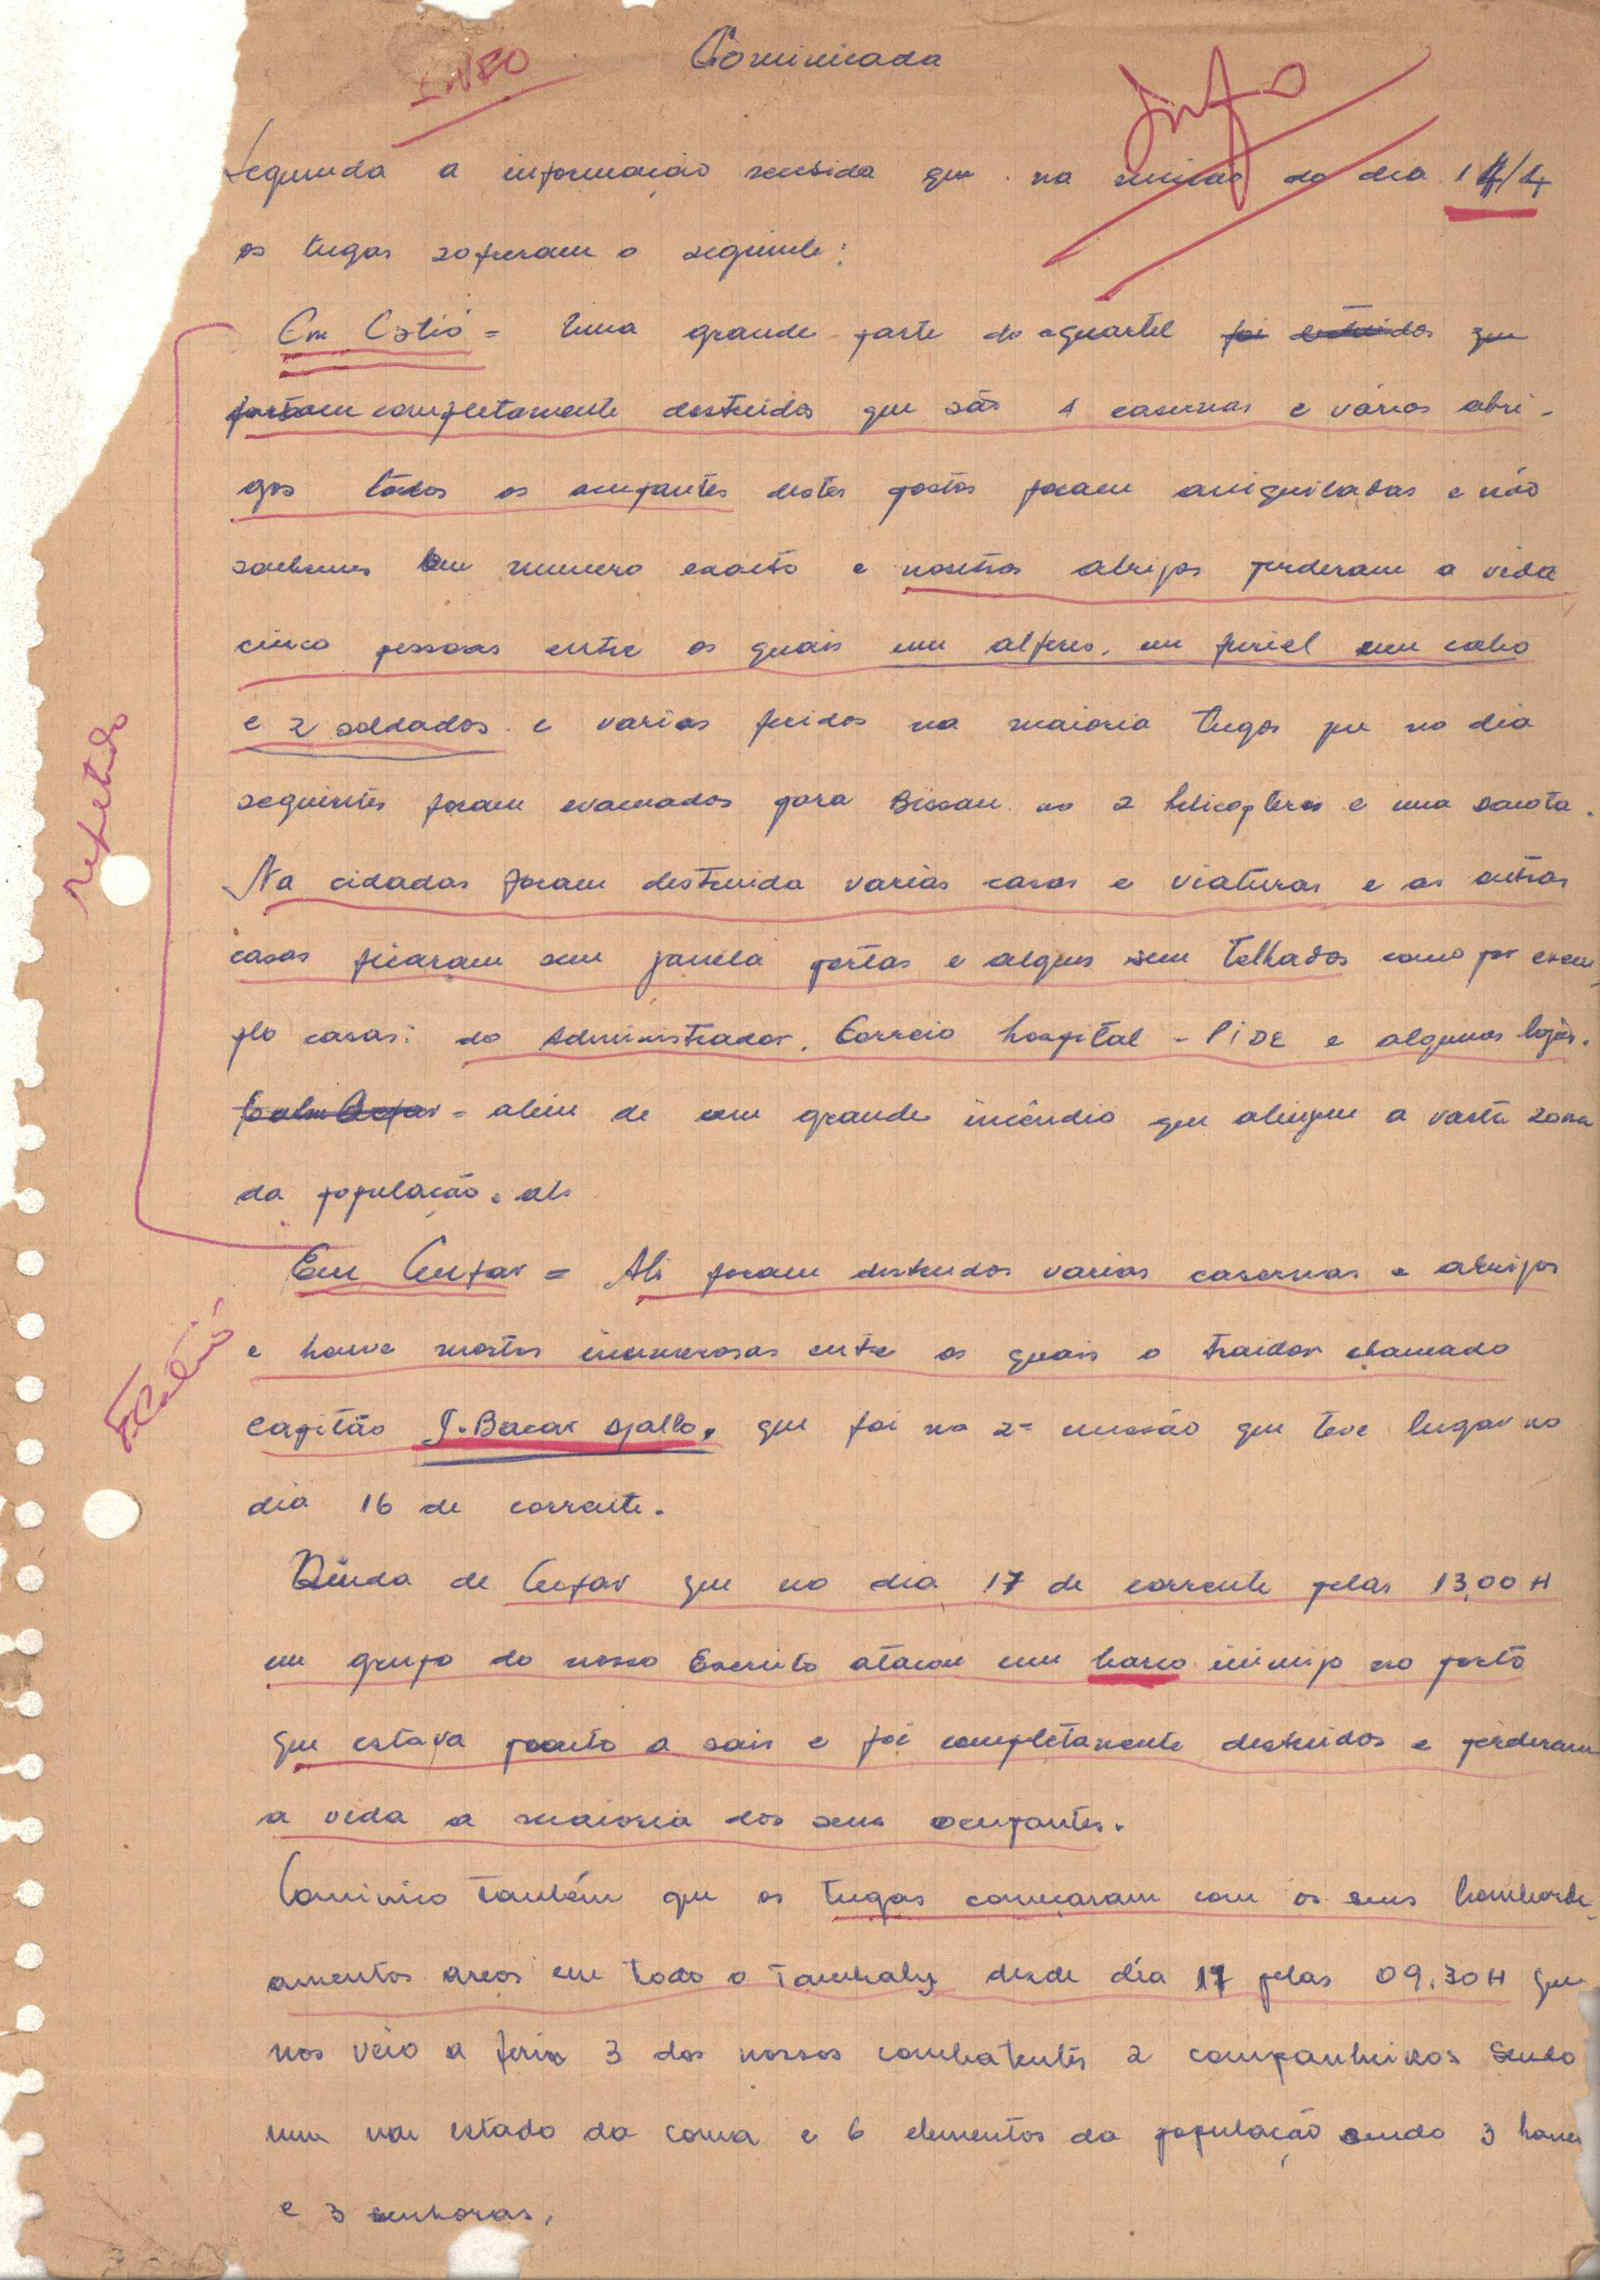 Cominicada
INFO
Info
Segunda a informação recebida que na missão do dia 14/4
os tugas sofreram o seguinte:
Em Catió = Uma grande parte do aquartel foi que
completamente destruidos que são 4 casernas e vários abri-
gos todos os ocupantes destes postos foram aniquiladas e não
sabemos em numero exacto e noutros abrigos perderam a vida
cinco pessoas entre os quais um alferes, um furiel um cabo
e 2 soldados e varios feridos na maioria tugas que no dia
seguintes foram evacuados para Bissau no 2 helicopteros e uma dacota.
Na cidadas foram destruida varias casas e viaturas e as outras
casas ficaram sem janela portas e algus sem telhados como por exem-
plo casas: do Administrador, Correio hospital - PIDE e algumas lojas.
= alem de um grande incêndio que atingeu a vasta zona
da população. ali
refetido
Em Cufar = Ali foram destruidos varias casernas e abrigos
e houve mortos inumerosas entre os quais o traidor chamado
capitão J. Bacar Djallo, que foi na 2ª missão que teve lugar no
dia 16 de corrente.
Ainda de Cufar que no dia 17 de corrente pelas 13,00 H
um grupo do nosso Exercito atacou um barco inimigo no porto
que estava pronto a sair e foi completamente destruidos e perderam
a vida a maioria dos seus ocupantes.
Cominico também que os tugas começaram com os seus bombarde-
amentos areos em todo o Tombaly desde dia 17 pelas 09,30H que
nos veio a ferir 3 dos nossos combatentes 2 companheiros sendo
um no estado da coma e 6 elementos da população sendo 3 homes
e 3 senhoras.